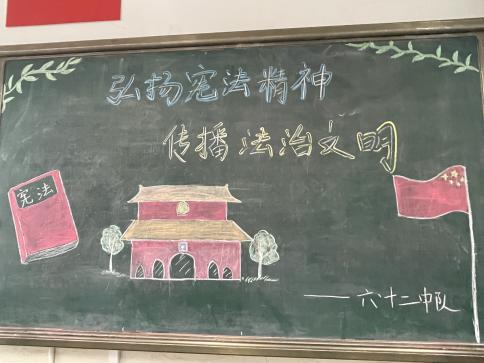 弘扬宪法精神
传播法治文明
宪法
——六十二中队